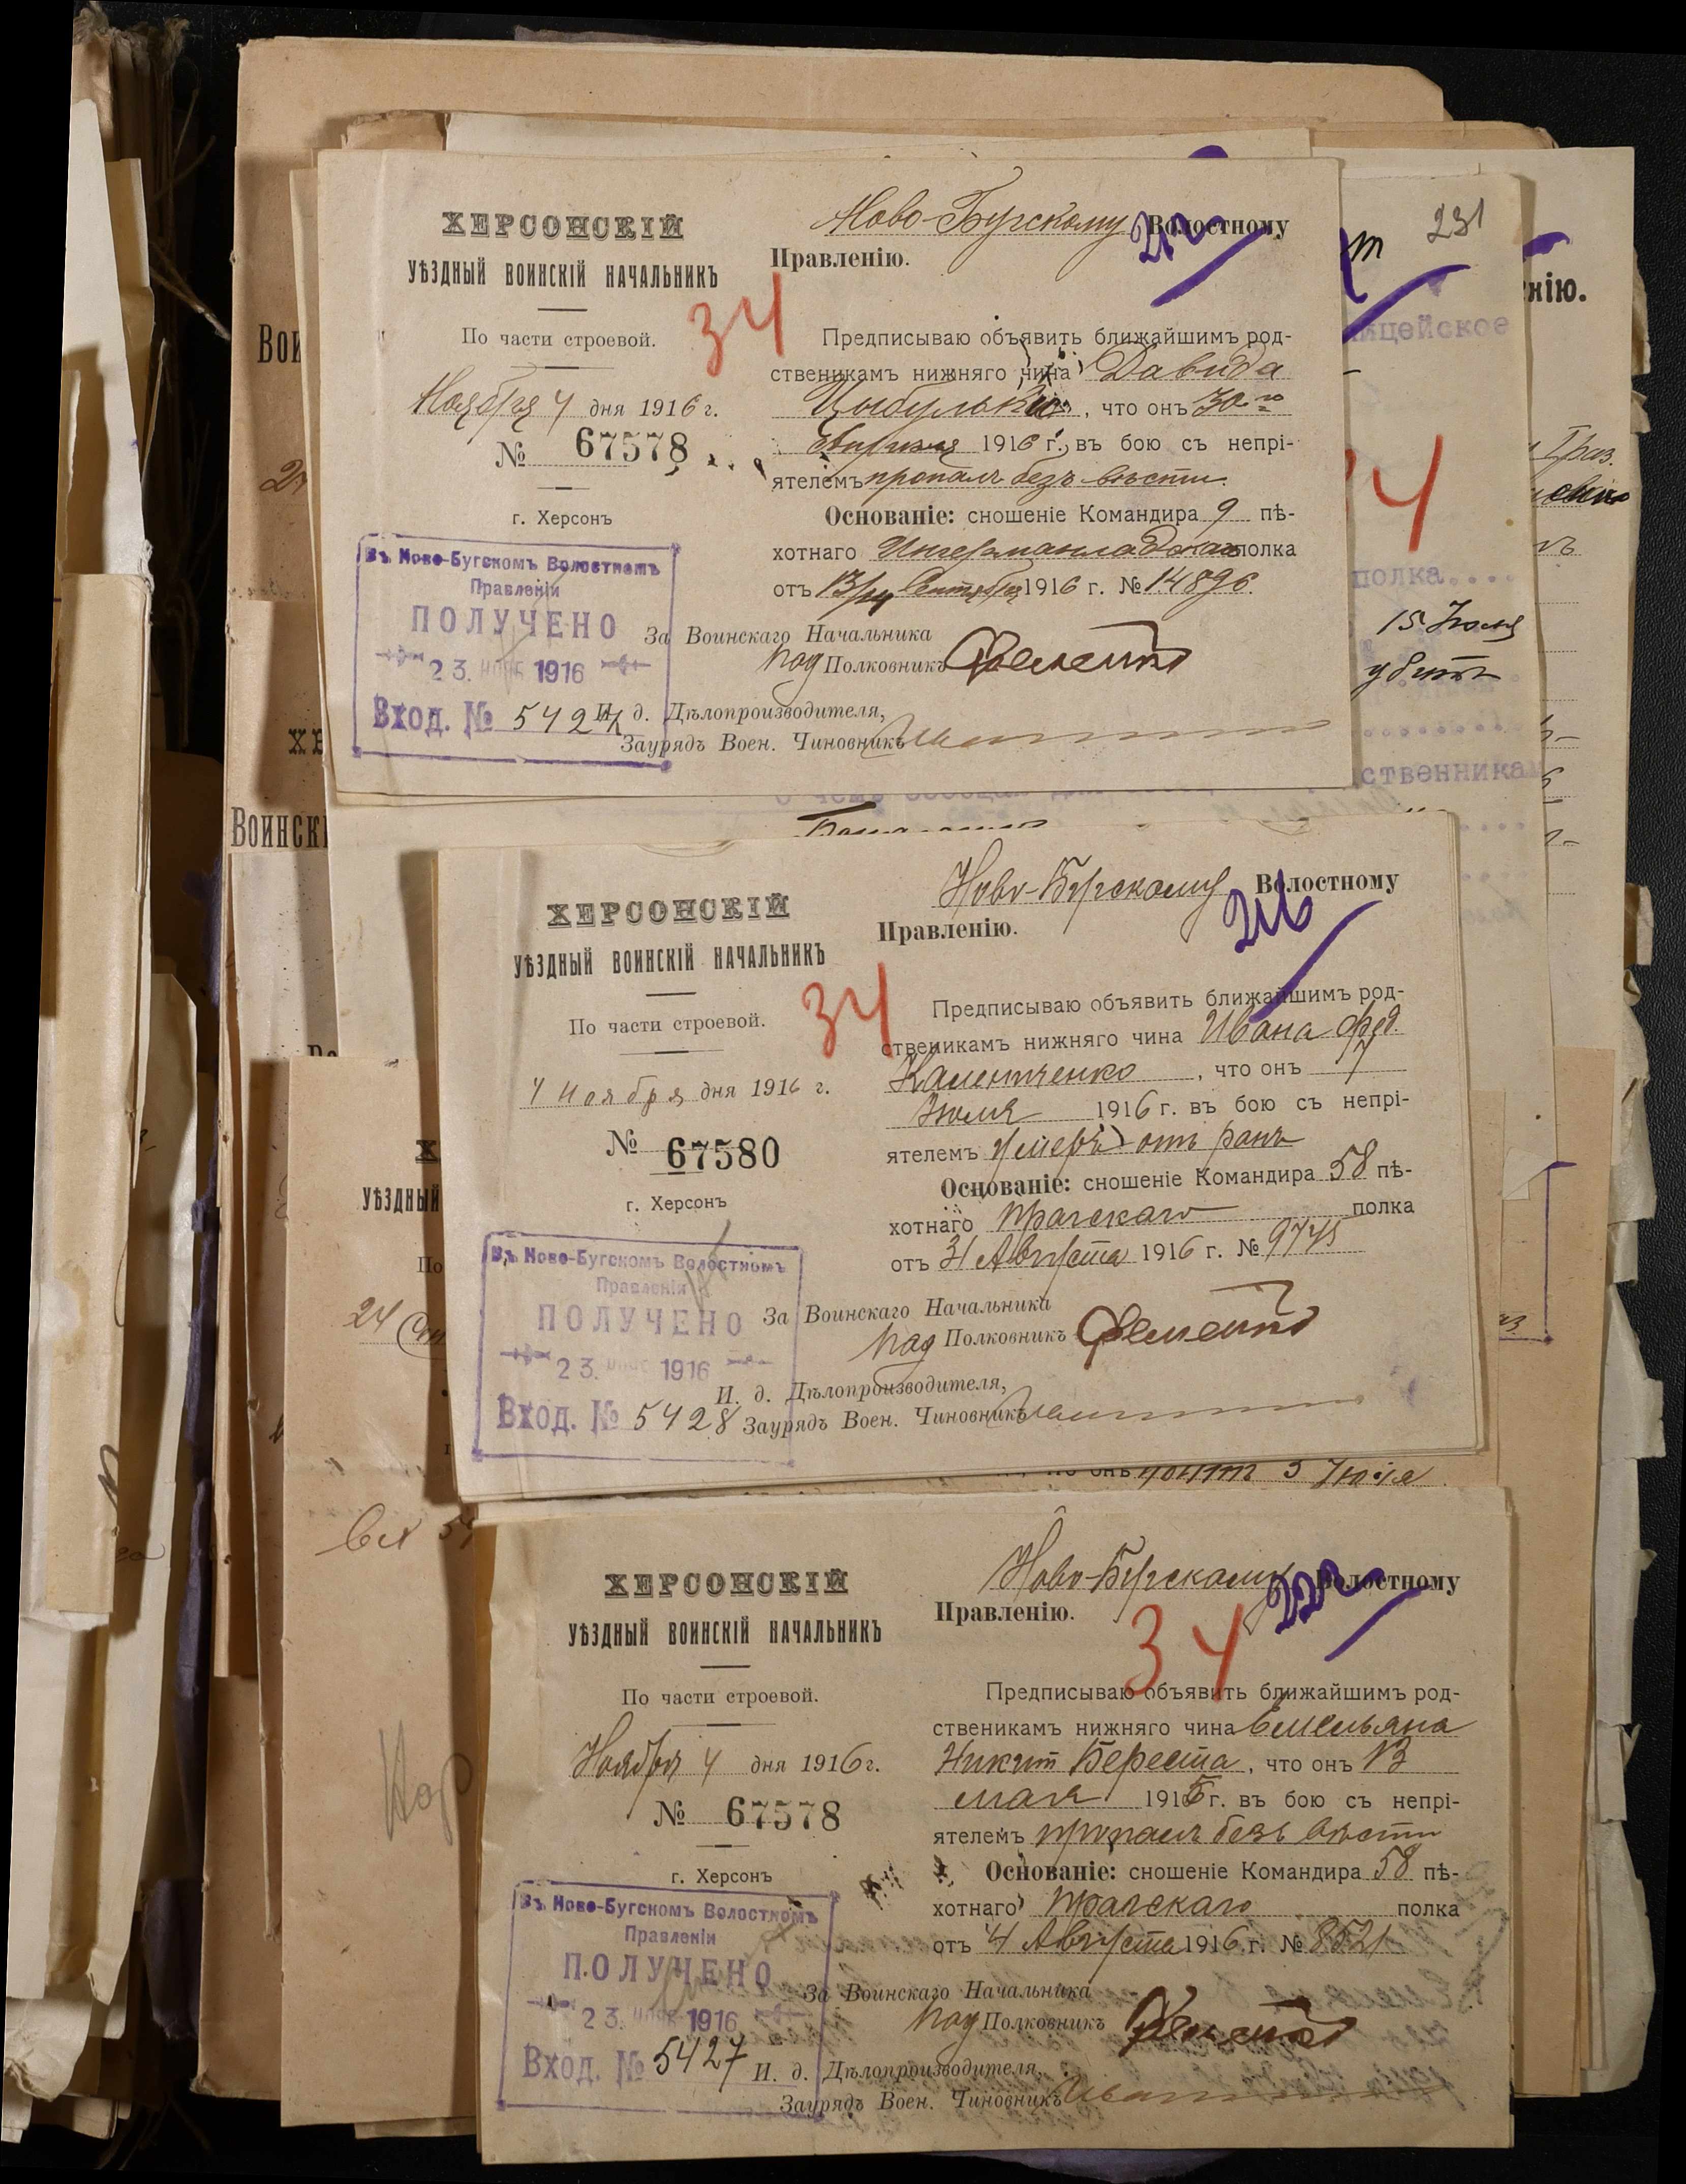 ХЕРСОНСКІЙ
УѢЗДНЫЙ ВОИНСКІЙ НАЧАЛЬНИКЪ
По части строевой.
Ноября 4 дня 1916 г.
№ 67578
г. Херсонъ
Въ Ново-Бугскомъ Волостномъ
Правленіи
ПОЛУЧЕНО
23. 1916
Вход. № 5424
34
Ново-Бугскому Волостному
Правленію.
Предписываю объявить ближайшимъ род-
ственикамъ нижняго чина Давида
Цыбулько, что онъ 30го
Апреля 1916 г. въ бою съ непрі-
ятелемъ пропалъ безъ вѣсти.
Основаніе: сношеніе Командира 9 пѣ-
хотнаго Ингерманладскаго полка
отъ 13/14 Сентября 1916 г. № 14896.
За Воинскаго Начальника
Под Полковникъ
И. д. Дѣлопроизводителя,
Заурядъ Воен. Чиновникъ
231
ицейское
34
полка
15 Іюля
убитъ
ственникам
нію.
ХЕРСОНСКІЙ
УѢЗДНЫЙ ВОИНСКІЙ НАЧАЛЬНИКЪ
По части строевой.
4 Ноября дня 1916 г.
№ 67580
г. Херсонъ
Въ Ново-Бугскомъ Волостномъ
Правленія
ПОЛУЧЕНО
23. 1916
Вход. № 5428
34
Ново-Бугскому Волостному
216
Правленію.
Предписываю объявить ближайшимъ род-
ственикамъ нижняго чина Ивана Фед.
Калениченко, что онъ 7
Іюля 1916 г. въ бою съ непрі-
ятелемъ умеръ отъ ранъ
Основаніе: сношеніе Командира 58 пѣ-
хотнаго Прагскаго полка
отъ 31 Августа 1916 г. № 9745
За Воинскаго Начальника
Под Полковникъ
И. д. Дѣлопроизводителя,
Заурядъ Воен. Чиновникъ
ВОИНСК
УѢЗДНЫЙ
По
24 Сен
ХЕРСОНСКІЙ
УѢЗДНЫЙ ВОИНСКІЙ НАЧАЛЬНИКЪ
По части строевой.
Ноября 4 дня 1916 г.
№ 67578
г. Херсонъ
Въ Ново-Бугскомъ Волостномъ
Правленіи
ПОЛУЧЕНО
23. 1916
Вход. № 5427
34
Ново-Бугскому Волостному
Правленію.
Предписываю объявить ближайшимъ род-
ственикамъ нижняго чина Емельяна
Никит Береста, что онъ 13
мая 1915 г. въ бою съ непрі-
ятелемъ пропалъ безъ вѣсти
Основаніе: сношеніе Командира 58 пѣ-
хотнаго Прагскаго полка
отъ 4 Августа 1916 г. № 8521
За Воинскаго Начальника
Под Полковникъ
И. д. Дѣлопроизводителя,
Заурядъ Воен. Чиновникъ